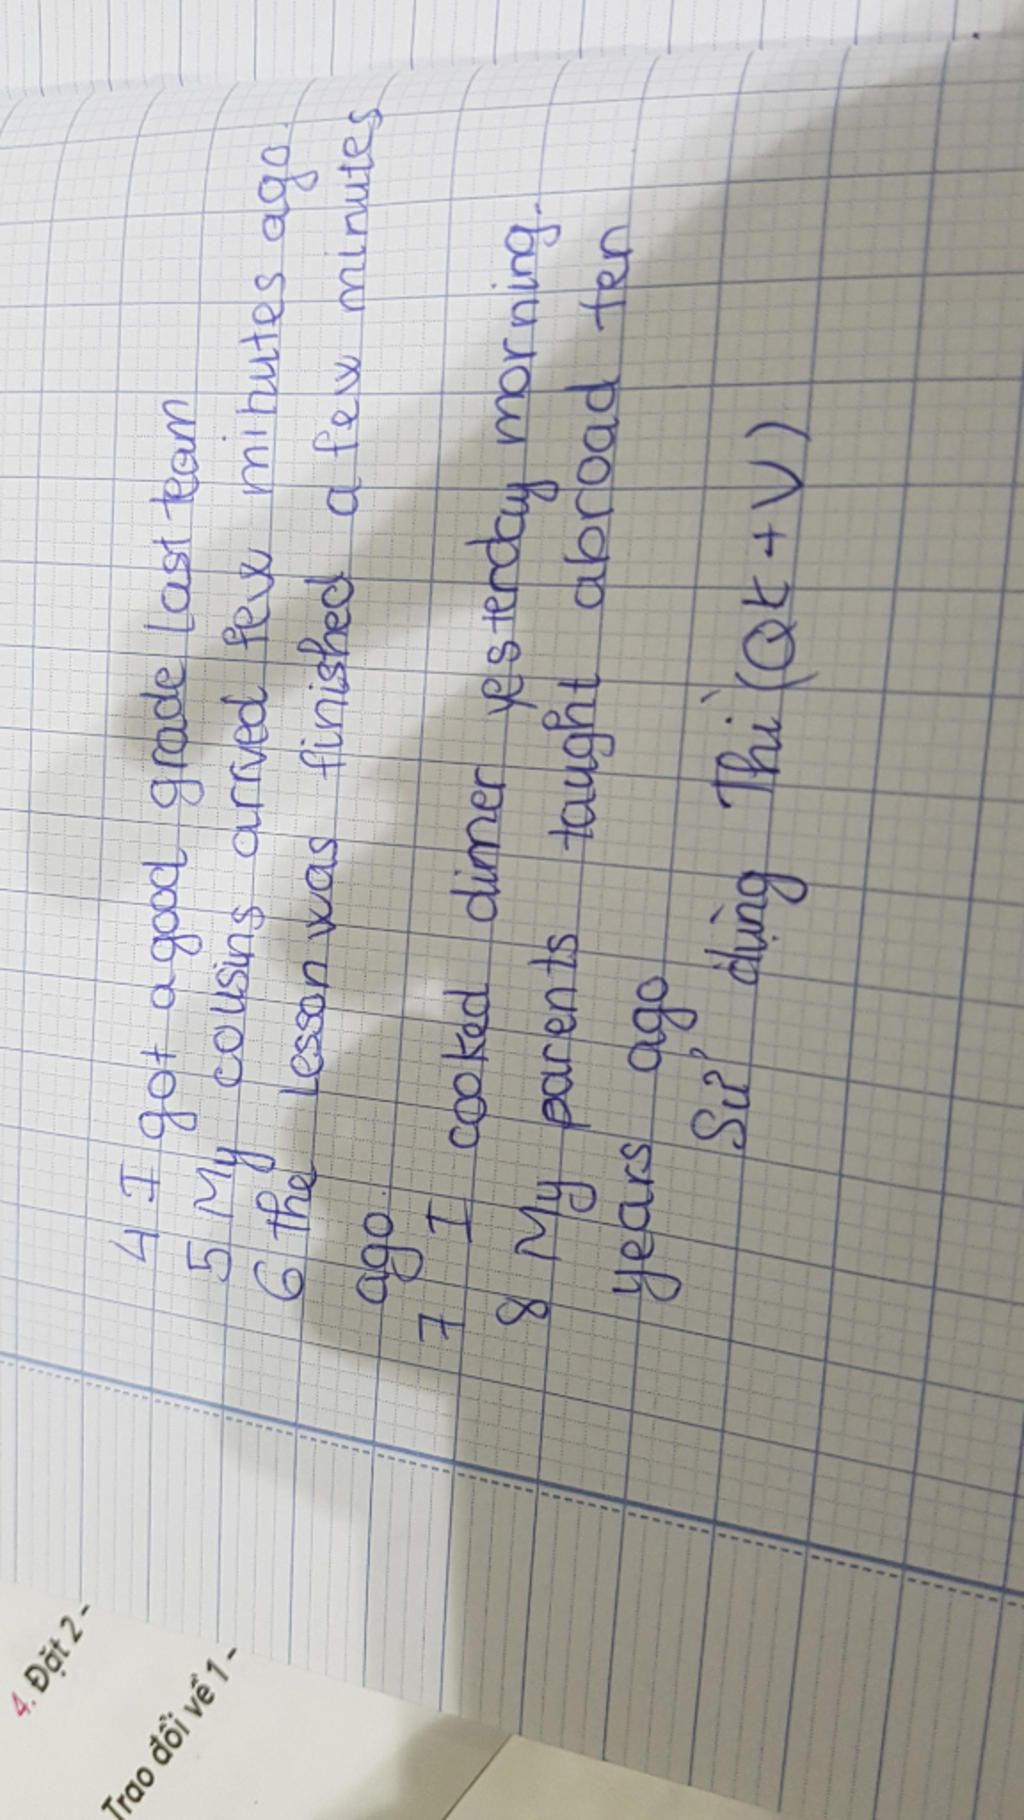 4 I got a good grade last team
5 My cousins arrived few minutes ago.
6 the lesson was finished a few minutes
ago.
7 I cooked dinner yesterday morning.
8 My parents taught abroad ten
years ago
Sử dụng Thì (Qk + V)
4. Đặt 2 -
Trao đổi về 1 -